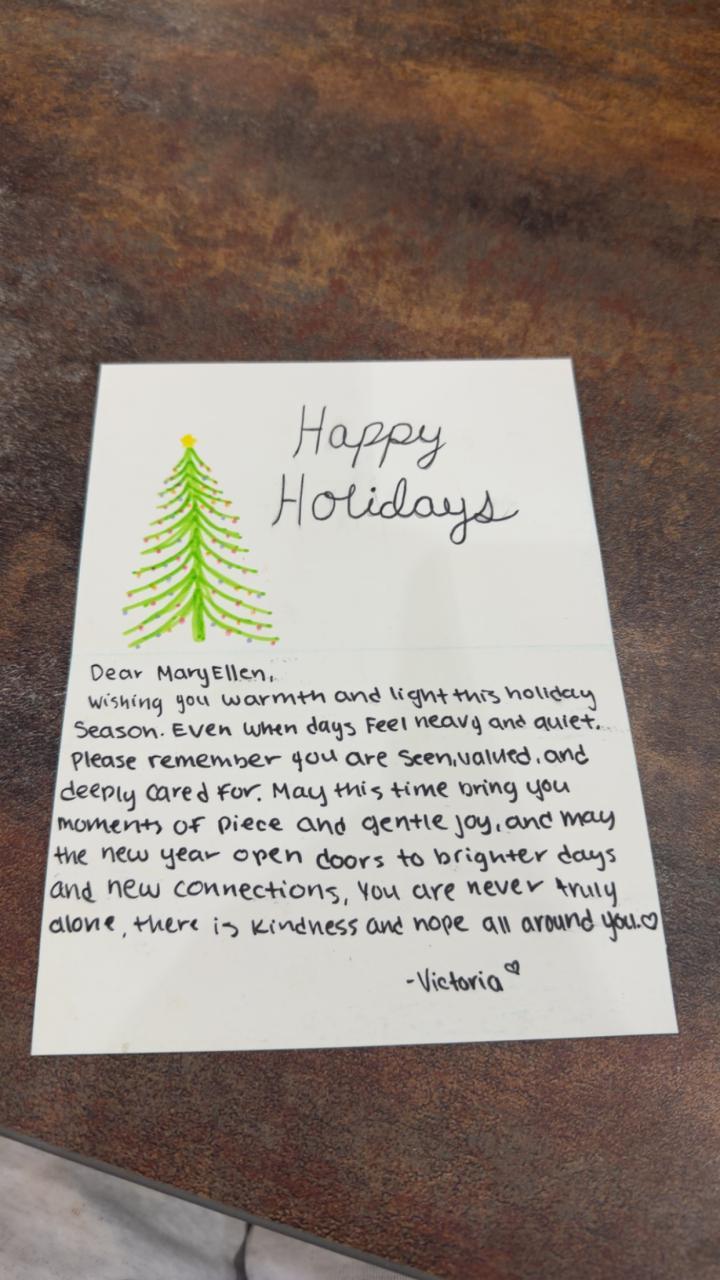 Happy
Holidays
Dear MaryEllen,
Wishing you warmth and light this holiday
Season. Even when days Feel heavy and quiet.
Please remember you are seen, valued, and
deeply cared for. May this time bring you
moments of piece and gentle joy, and may
the new year open doors to brighter days
and new connections, You are never truly
alone, there is kindness and hope all around you.♡
-Victoria♡